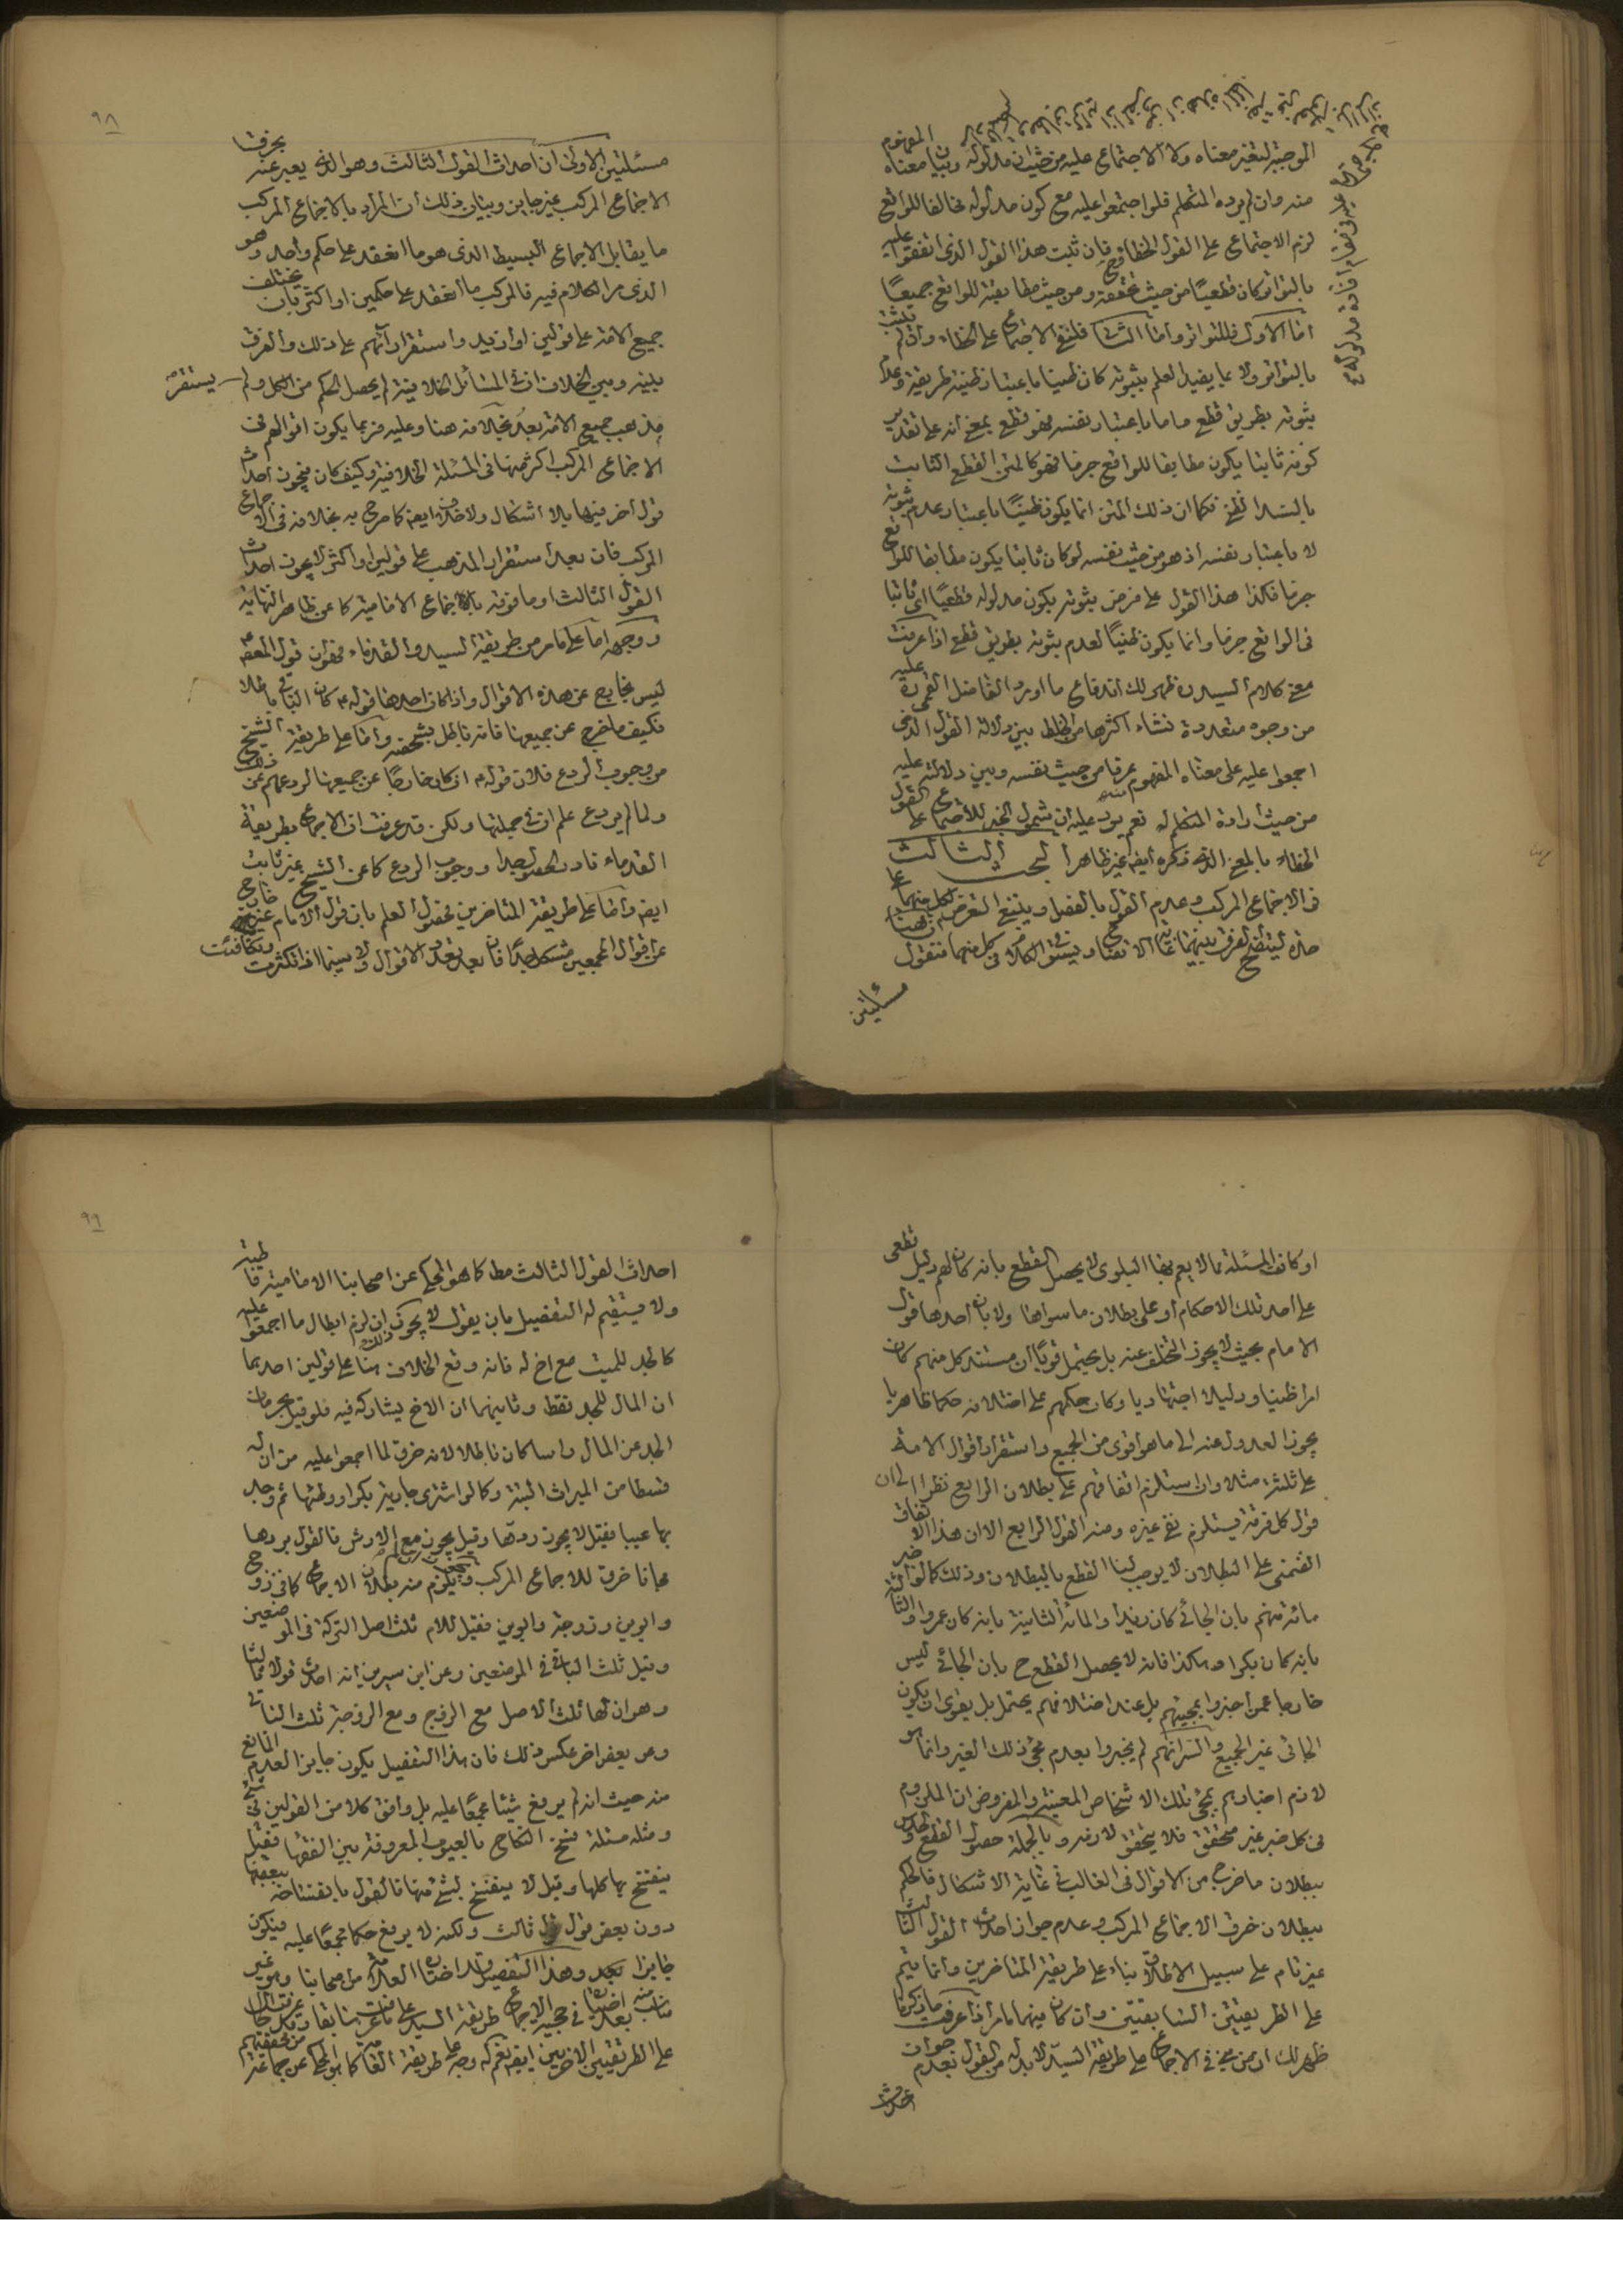 الموجبة لتغير معناه ولا الاجتماع عليه من حيث ان مدلوله وبيان معناه المفهوم
منه وان لم يرده المتكلم فلو اجتمعوا عليه مع كون مدلوله مخالفا للواقع
لزم الاجتماع على القول الخطاء فان ثبت هذا القول الذى اتفقوا عليه
بالتواتر كان قطعيا من حيث تحققه ومن حيث مطابقته للواقع جميعا
اما الاول فللتواتر واما الثانى فلنفى الاجتماع على الخطاء وان لم يثبت
بالتواتر ولا بما يفيد العلم بثبوته كان ظنيا باعتبار ظنية طريقه وعدم
ثبوته بطريق قطع واما باعتبار نفسه فهو قطع بمعنى انه على تقدير
كونه ثابتا يكون مطابقا للواقع جزما فهو كالمتن القطعى الثابت
بالسند الظنى فكما ان ذلك المتن انما يكون ظنيا باعتبار عدم ثبوته
لا باعتبار نفسه اذ هو من حيث نفسه لو كان ثابتا يكون مطابقا للواقع
جزما فكذا هذا القول على فرض ثبوته يكون مدلوله قطعيا اى ثابتا
فى الواقع جزما وانما يكون ظنيا لعدم ثبوته بطريق قطع اذا عرفت
معنى كلام السيد ره ظهر لك اندفاع ما اورد الفاضل القمى ره عليه
من وجوه متعددة نشاء اكثرها من الخلط بين دلالة القول الذى
اجمعوا عليه على معناه المفهوم عرفا من حيث نفسه وبين دلالته عليه
من حيث ارادة المتكلم له نعم يرد عليه ان شمول الخبر للاجتماع على القول
الخطاء بالمعنى الذى ذكره ايضا غير ظاهر البحث الثالث
فى الاجماع المركب وعدم القول بالفصل وينبغى التعرض لكل منهما على
حدة ليتضح الفرق بينهما غاية الاتضاح ويستوفى الكلام فى كل منهما فنقول
مسئلتين
٩٨
مسئلتين الاولى ان احداث القول الثالث وهو الذى يعبر عنه بخرق
الاجماع المركب غير جايز وبيان ذلك ان المراد بالاجماع المركب
ما يقابل الاجماع البسيط الذى هو ما انعقد على حكم واحد وهو
الذى مر الكلام فيه فالمركب ما انعقد على حكمين او اكثر بان يختلف
جميع الامة على قولين او ازيد واستقر ارآئهم على ذلك والفرق
بينه وبين الخلاف ان فى المسائل الخلافية لم يحصل الحكم من الكل ولم يستقر
مذهب جميع الامة بعد بخلافه هنا وعليه فربما يكون اقوالهم فى
الاجماع المركب اكثر منها فى المسئلة الخلافية وكيف كان فيجوز احداث
قول آخر فيها بلا اشكال ولا خلاف ايضا كما صرح به بخلافه فى الاجماع
المركب فان بعد استقرار المذهب على قولين او اكثر لا يجوز احداث
القول الثالث او ما فوقه باجماع الامامية كما عن ظاهر النهاية
ووجهه اما على ما مر من طريقة السيد والقدماء فهو ان قول المعصوم
ليس بخارج عن هذه الاقوال واذا كان احدها قوله ع كان الباقى باطلا
فكيف ما خرج عن جميعها فانه باطل بشخصه واما على طريقة الشيخ
من وجوب الردع فلان قوله ع ان كان خارجا عن جميعها لردعهم عن ذلك
ولما لم يردع علم انه فى جملتها ولكن قد عرفت ان الاجماع بطريقة
القدماء نادر الحصول جدا ووجوب الردع كما عن الشيخ غير ثابت
ايضا واما على طريقة المتاخرين فحصول العلم بان قول الامام غير خارج
عن اقوال المجمعين مشكل جدا فان بعد تعدد الاقوال ولا سيما اذا تكثرت وتكافئت
او كانت المسئلة مما لا يعم بها البلوى لا يحصل القطع بانه كان لهم دليل قطعى
على احد تلك الاحكام او على بطلان ما سواها ولا بان احدها قول
الامام بحيث لا يجوز التخلف عنه بل يحتمل قويا ان مستند كل منهم كان
امرا ظنيا ودليلا اجتهاديا وكان حكمهم على اختلافه حكما ظاهريا
يجوز العدول عنه الى ما هو اقوى من الجميع واستقرار اقوال الامة
على ثلثة مثلا وان استلزم اتفاقهم على بطلان الرابع نظرا الى ان
قول كل فرقة يستلزم نفى غيره ومنه القول الرابع الا ان هذا الاتفاق
الضمنى على البطلان لا يوجب لنا القطع بالبطلان وذلك كما لو اخبر
مائة منهم بان الجائى كان زيدا والمائة الثانية بانه كان عمروا والثالثة
بانه كان بكرا وهكذا فانه لا يحصل القطع ح بان الجائى ليس
خارجا عمن اخبروا بمجيئهم بل عند اختلافهم يحتمل بل يقوى ان يكون
الجائى غير الجميع والسر انهم لم يخبروا بعدم مجئ ذلك الغير وانما هو
لازم اخبارهم بمجئ تلك الاشخاص المعينة والمفروض ان الملزوم
فى كل خبر غير متحقق فلا يتحقق لازمه وبالجملة حصول القطع والحدس
ببطلان ما خرج من الاقوال فى الغالب فى غاية الاشكال فالحكم
ببطلان خرق الاجماع المركب وعدم جواز احداث القول الثالث
غير تام على سبيل الاطلاق بناء على طريقة المتاخرين وانما يتم
على الطريقتين السابقتين وان كان فيهما ما مر اذا عرفت ما ذكرنا
ظهر لك ان من يرى الاجماع على طريقة السيد لا بد له من القول بعدم جواز
احداث
٩٩
احداث القول الثالث مطلقا كما هو المحكى عن اصحابنا الامامية قاطبة
ولا يستقيم له التفصيل بان يقول لا يجوز ذلك ان لزم ابطال ما اجمعوا عليه
كالجد للميت مع اخ له فانه وقع الخلاف هنا على قولين احدهما
ان المال للجد فقط وثانيهما ان الاخ يشاركه فيه فلو قيل بحرمان
الجد عن المال راسا كان باطلا لانه خرق لما اجمعوا عليه من ان له
قسطا من الميراث البتة وكما لو اشترى جارية بكرا ووطئها ثم وجد
بها عيبا فقيل لا يجوز ردها وقيل يجوز مع الارش فالقول بردها
مجانا خرق للاجماع المركب ويجوز ان لم يلزم منه بطلان الاجماع كما فى زوج
وابوين وزوجة وابوين فقيل للام ثلث اصل التركة فى الموضعين
وقيل ثلث الباقى فى الموضعين وعن ابن سيرين انه احدث قولا ثالثا
وهو ان لها ثلث الاصل مع الزوج ومع الزوجة ثلث الباقى
وعن بعض اخر عكس ذلك فان هذا التفصيل يكون جايزا لعدم المانع
منه حيث انه لم يرفع شيئا مجمعا عليه بل وافق كلا من القولين فى شئ
ومثله مسئلة فسخ النكاح بالعيوب المعروفة بين الفقهاء فقيل
ينفسخ بها كلها وقيل لا ينفسخ بشئ منها فالقول بانفساخه ببعضها
دون بعض قول ثالث ولكنه لا يرفع حكما مجمعا عليه فيكون
جايزا بعد وهذا التفصيل قد اختاره العلامة من اصحابنا وهو غير
مناسب منه بعد اختياره فى حجية الاجماع طريقة السيد على ما عرفت سابقا
على الطريقتين الاخريين ايضا نعم له وجه على طريقة العامة كما هو المحكى عن جماعة من محققيهم